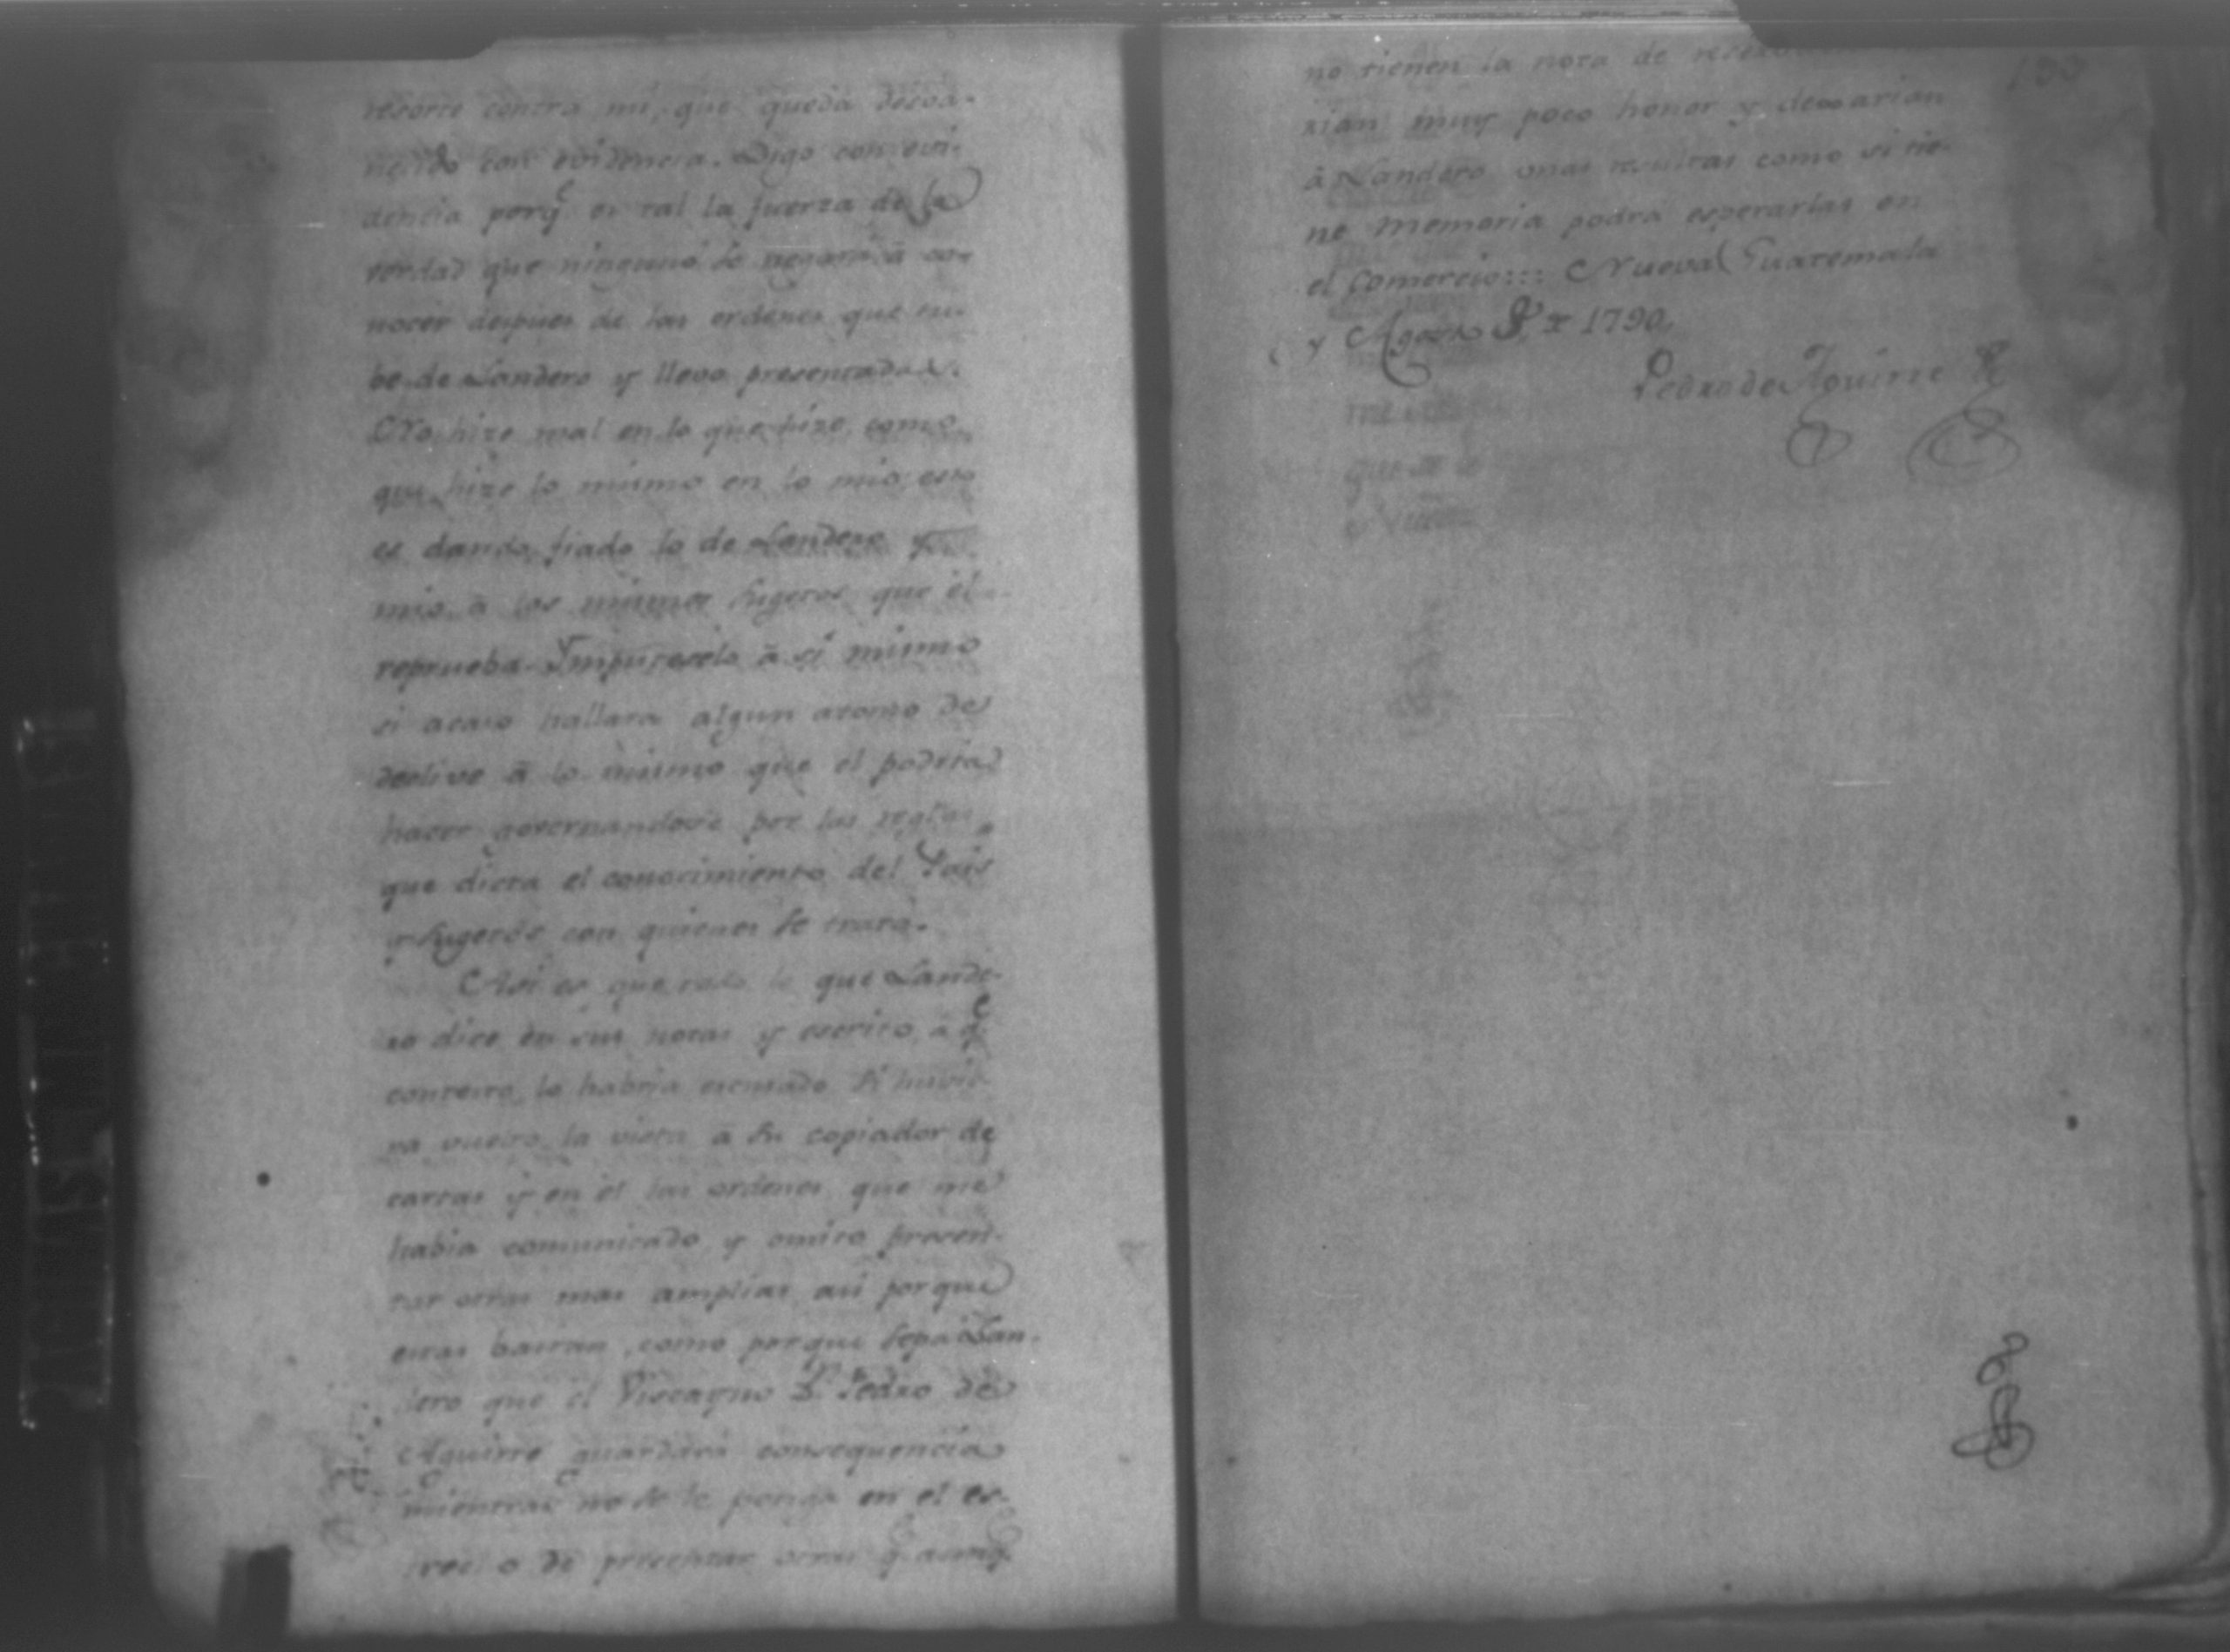 resorte contra mi, que queda desva-
necido con evidencia. Digo con evi-
dencia porq.e es tal la fuerza de la
verdad que ninguno se negará à co-
nocer despues de las ordenes que tu-
be de Landero y llevo presentadas.
No hize mal en lo que hize, como
que hize lo mismo en lo mio, esto
es dando fiado lo de Landero y
mio à los mismos sugetos que el
reprueba. Imputeselo à si mismo
si acaso hallara algun atomo de
declive à lo mismo que el podria
hacer governandose por las reglas
que dicta el conocimiento del Pais
y sugetos con quienes se trata.
Asi es que todo lo que Lande-
ro dice en sus notas y escrito, à q.e
contesto, lo habria escusado si huvie-
ra vuelto la vista à su copiador de
cartas y en el las ordenes que me
habia comunicado y omito presen-
tar otras mas amplias asi porque
estas bastan, como porque sepa Lan-
dero que el Viscayno D.n Pedro de
Aguirre guardará consequencia
mientras no se le ponga en el es-
trecho de presentar otras q.e aunq.e
no tienen la nota de
rian muy poco honor y
à Landero unas resultas como si tie-
ne memoria podrá esperarlas en
el Comercio::: Nueva Guatemala
y Agosto de 1790.
Pedro de Aguirre